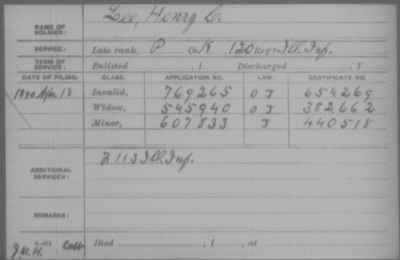 NAME OF SOLDIER: Lee, Henry C.
SERVICE: Late rank, P Co. K, 120 Reg't Ill. Inf.
TERM OF SERVICE: Enlisted , 1 Discharged , 1
DATE OF FILING. CLASS. APPLICATION NO. LAW. CERTIFICATE NO.
Apr. 18 Invalid, 769265 O J 654269
Widow, 545940 O J 382662
Minor, 607833 J 440518
ADDITIONAL SERVICES: 113 Ill. Inf.
REMARKS:
J.M.H. Died , 1 , at